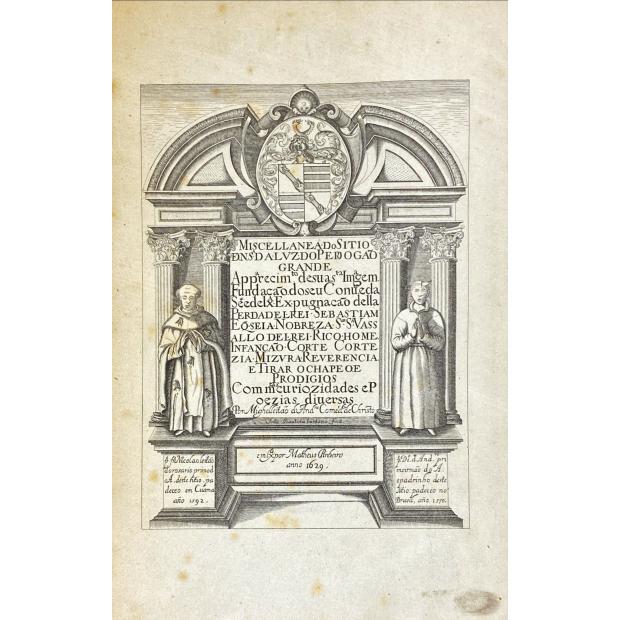 MISCELLANEA DO SITIO
DNS DA LVZ DO PEDOGÃO
GRANDE
Apparecim.to de suas.ta Imgem
Fundação do seu Conv.to e da
Sée de Lx.a Expugnação della
PERDA DELREI SEBASTIAM
NOBREZA Sr VASS
ALLO DELREI RICO HOME
INFANÇÃO CORTE CORTE
ZIA MIZVRA REVERENCIA
E TIRAR O CHAPEO E
PRODIGIOS
Com curiozidades e P
oezias diversas
Por Miguel leitão dAnd.a Comd.or de Christo
Baptista fecit
em Lx.a por Matheus Pinheiro
anno 1629.
fr. Nicolao leitão
do rosario pr
A. deste sitio, pa
deceo em Cuama
año 1592.
And. pri
irmão do A.
e padrinho deste
sitio padeceo no
Brasil, año 1570.